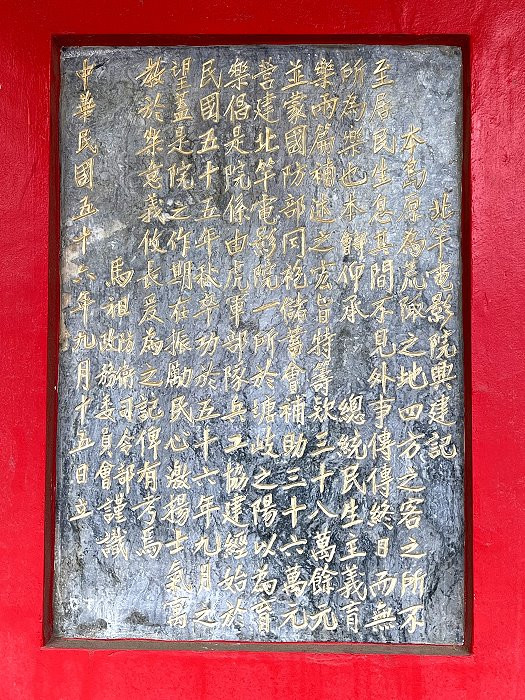 北竿電影院興建記
本島原為荒陬之地四方之客之所不
至居民生息其間不見外事傳傳終日而無
所為樂也本轄仰承 總統民生主義育
樂兩篇補述之宏旨特籌欵三十八萬餘元
並蒙國防部同袍儲蓄會補助三十六萬元
營建北竿電影院一所於塘岐之陽以為育
樂倡是院係由虎軍部隊兵工協建經始於
民國五十五年秋卒功於五十六年九月之
望蓋是院之作期在振勵民心激揚士氣寓
教於樂意義攸長爰為之記俾有考焉
馬祖防衛司令部政務委員會謹識
中華民國五十六年九月十五日立